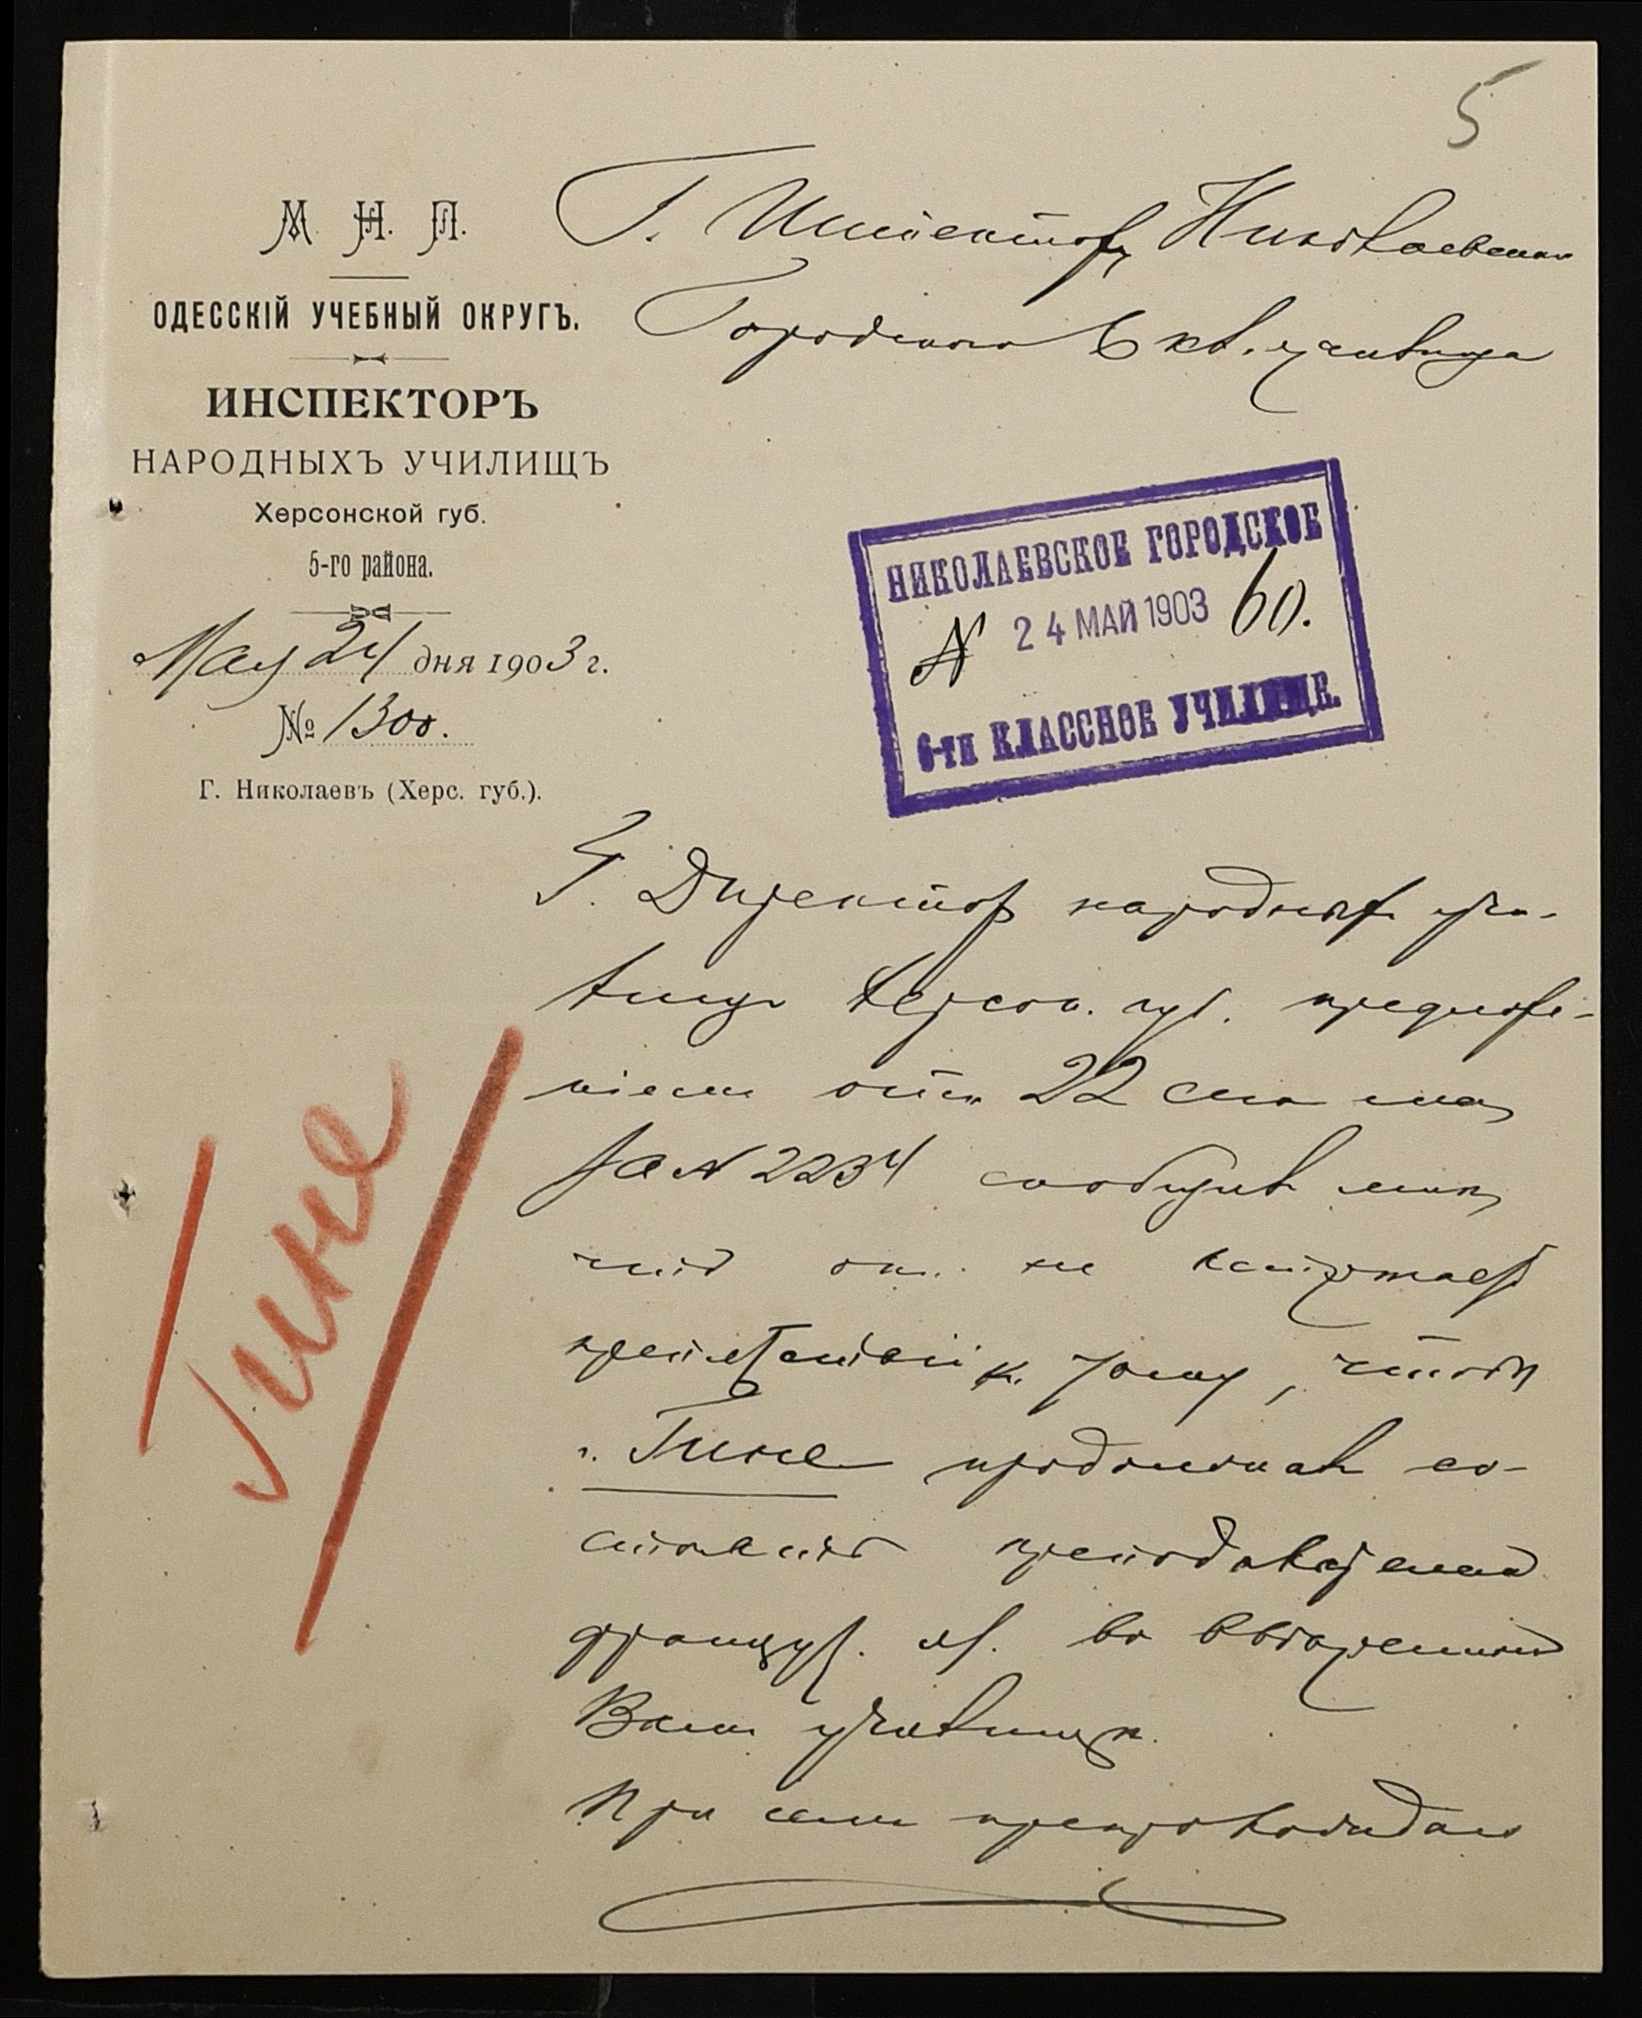 5
М. Н. П.
ОДЕССКІЙ УЧЕБНЫЙ ОКРУГЪ.
ИНСПЕКТОРЪ
НАРОДНЫХЪ УЧИЛИЩЪ
Херсонской губ.
5-го района.
Мая 24 дня 1903 г.
№ 1300.
Г. Николаевъ (Херс. губ.).
Г. Инспектору Николаевскаго
Городского 6 кл. училища
НИКОЛАЕВСКОЕ ГОРОДСКОЕ
N 24 МАЙ 1903 60.
6-ти КЛАССНОЕ УЧИЛИЩЕ.
Г. Директоръ народныхъ учи-
лищъ Херсон. губ. предложе-
ніемъ отъ 22 сего мая
за N 2234 сообщилъ мнѣ,
что онъ не встрѣчаетъ
препятствій къ тому, чтобы
г. Гине продолжалъ со-
стоять преподавателемъ
француз. яз. во ввѣренномъ
Вамъ училищѣ.
При семъ препровождаю
Гине